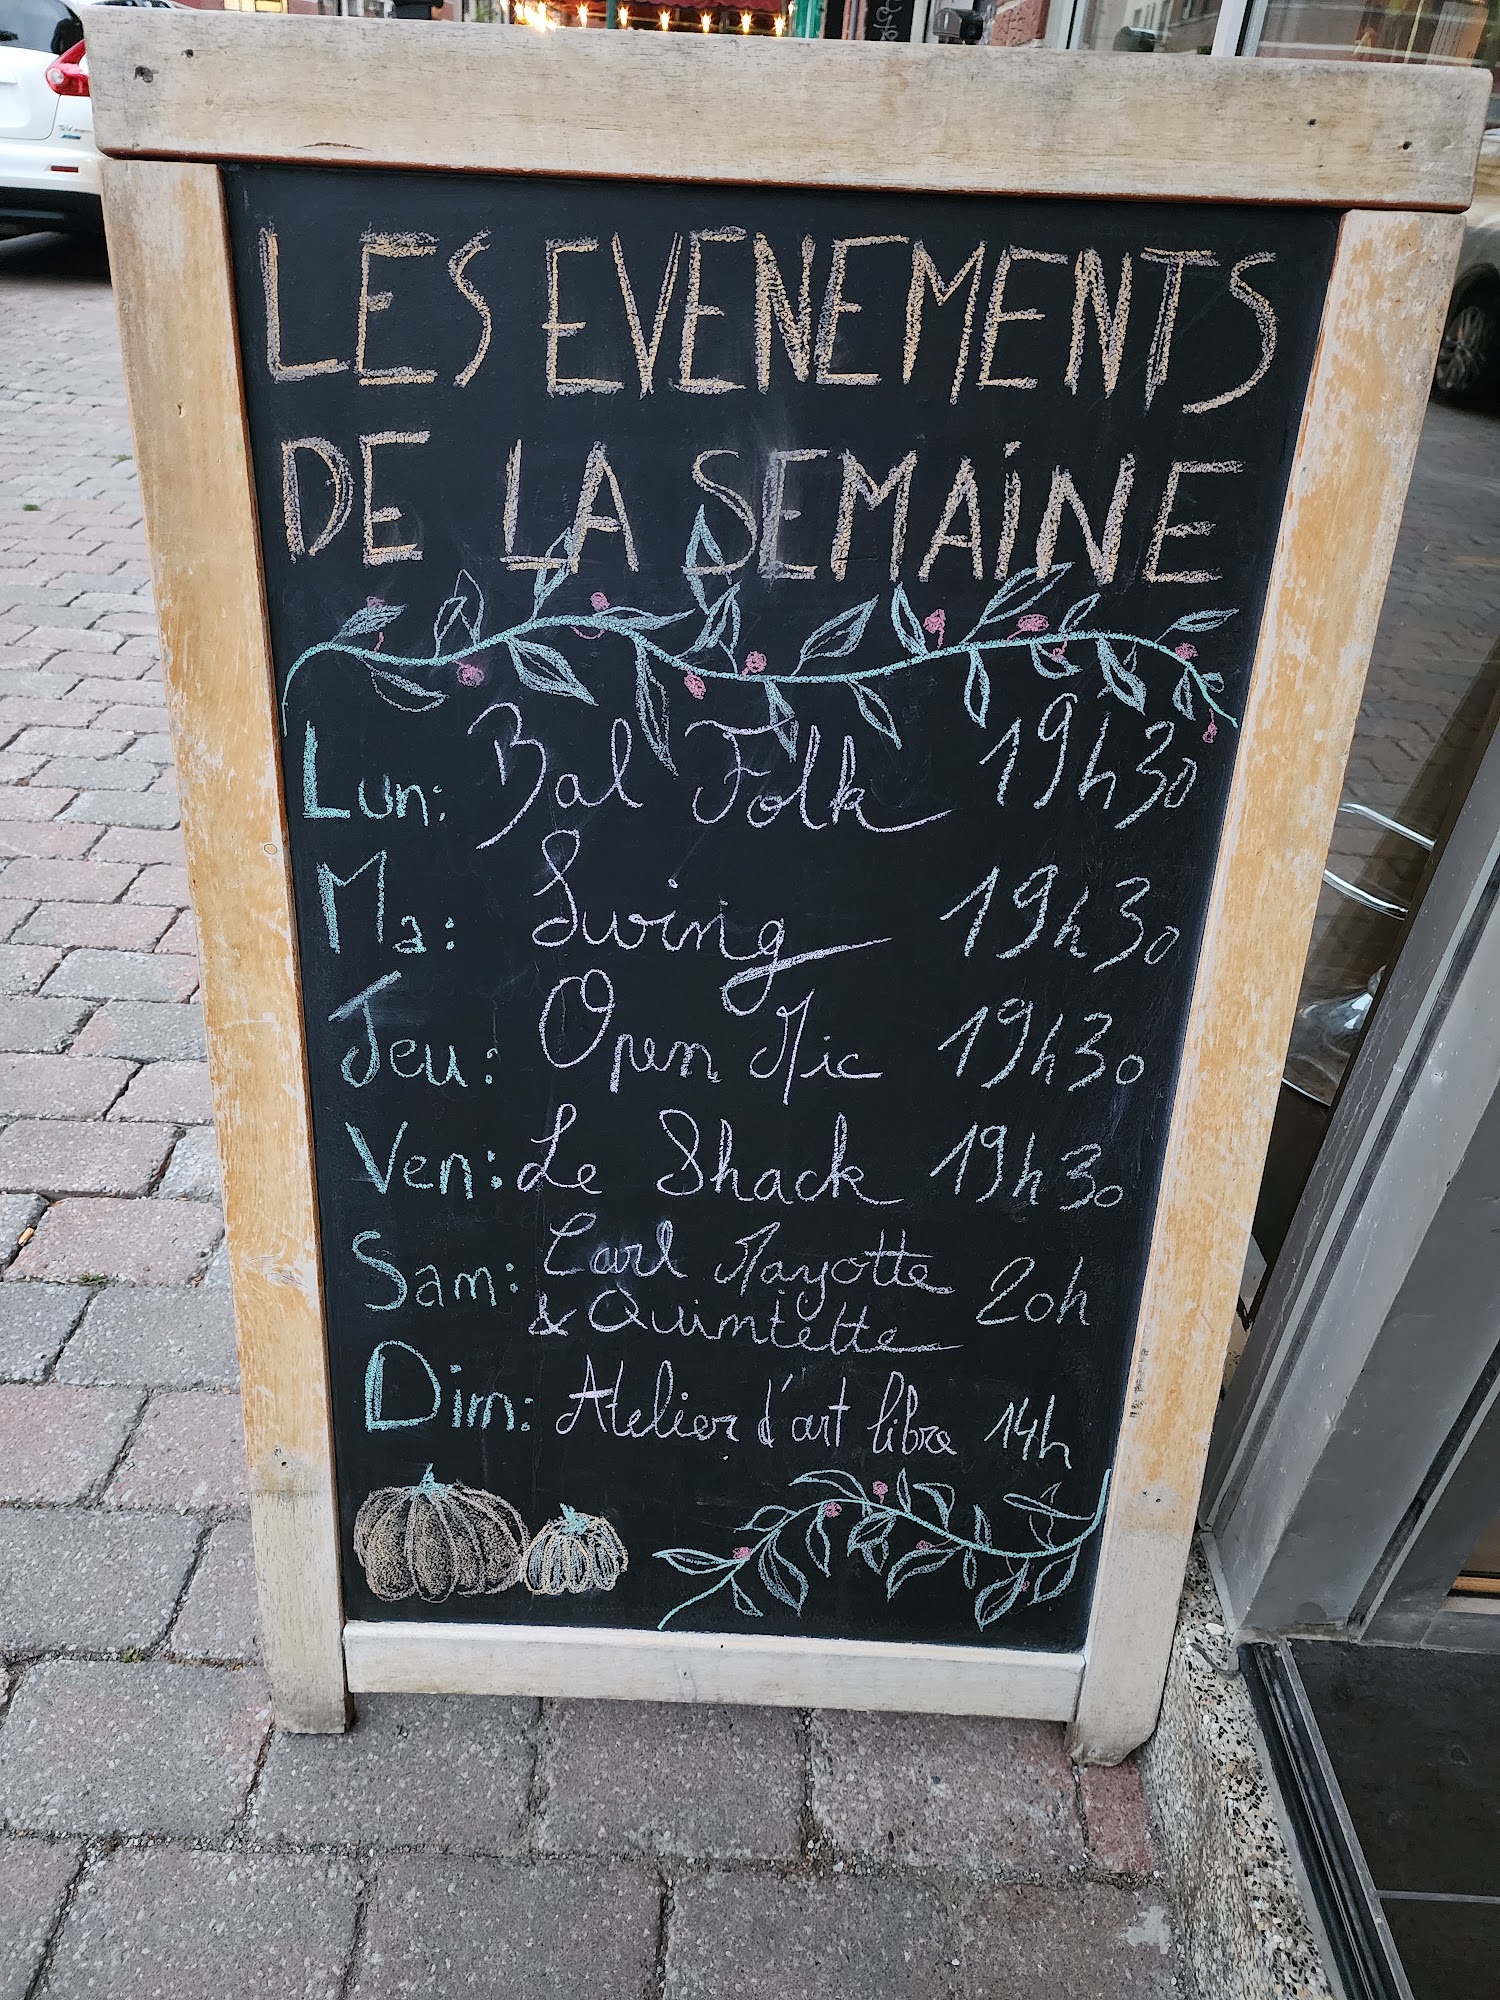 LES EVENEMENTS
DE LA SEMAINE
Lun: Bal Folk 19h30
Ma: Swing 19h30
Jeu: Open Mic 19h30
Ven: Le Shack 19h30
Sam: Carl Mayotte 20h
& Quintette
Dim: Atelier d'art libre 14h